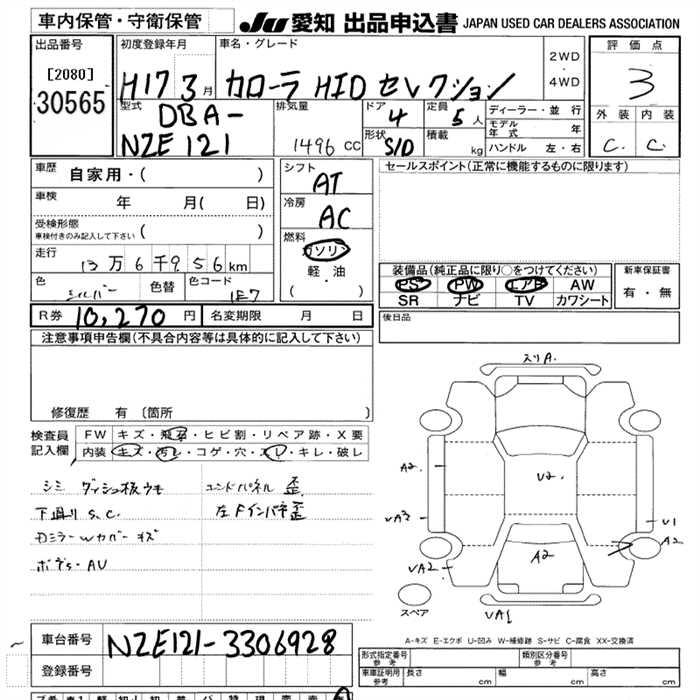 車内保管・守衛保管
JU 愛知 出品申込書 JAPAN USED CAR DEALERS ASSOCIATION
出品番号 [2080] 30565
初度登録年月 H17 3月
車名・グレード カローラ HID セレクション
2WD・4WD
評価点 3
外装 内装
C. C.
型式 DBA-NZE121
排気量 1496 CC
ドア 4
形状 S/D
定員 5人
積載 kg
ディーラー・並行
モデル年式 年
ハンドル 左・右
車歴 自家用・( )
車検 年 月( 日)
受検形態 車検付きのみ記入して下さい ( )
走行 13万6千956km
色 シルバー 色替 色コード 1E7
シフト AT
冷房 AC
燃料 ガソリン
軽・油
( )
セールスポイント(正常に機能するものに限ります)
装備品(純正品に限り○をつけてください)
PS PW エアB AW
SR ナビ TV カワシート
新車保証書 有・無
R券 10,270円 名変期限 月 日
後日品
注意事項申告欄(不具合内容等は具体的に記入して下さい)
修復歴 有 〔箇所 〕
検査員記入欄
FW キズ・飛石・ヒビ割・リペア跡・X要
内装 キズ・汚レ・コゲ・穴・スレ・キレ・破レ
シミ ダッシュ板ウキ
下廻り S.C.
Dミラー Wカバー キズ
ボデー AU
エンドパネル 歪
左Fインパネ歪
スリA.
A2
U2
VA3
U1
A2
A2
VA2
VA1
スペア
A-キズ E-エクボ U-凹み W-補修跡 S-サビ C-腐食 XX-交換済
車台番号 NZE121-3306928
登録番号
形式指定番号 参考
類別区分番号 参考
車庫証明用 参考 長さ cm 幅 cm 高さ cm